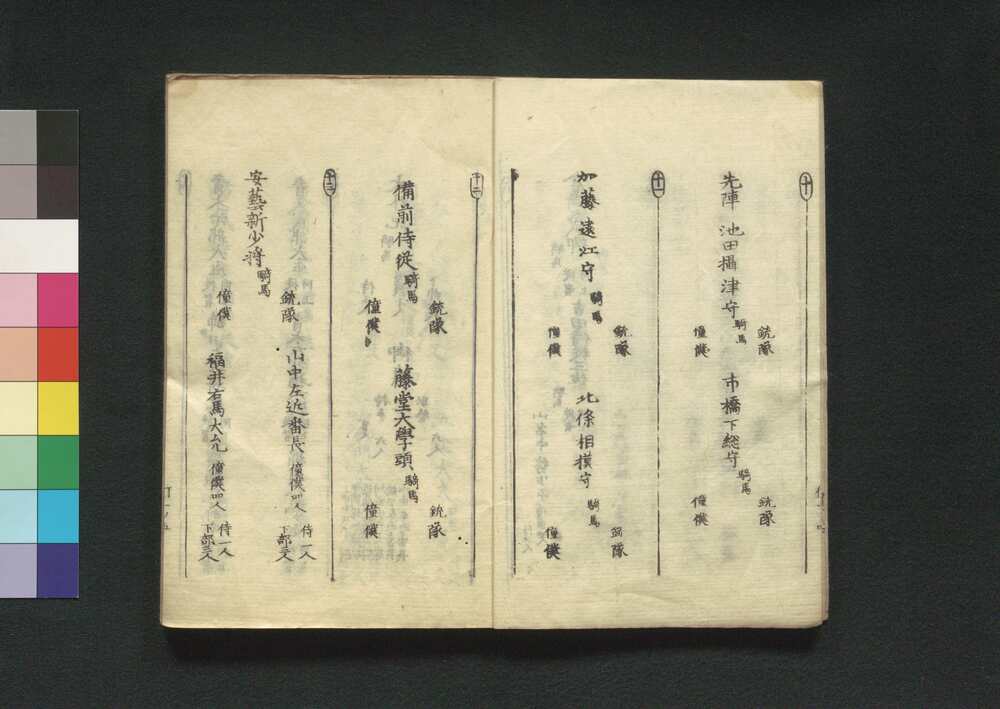 十
先陣 池田攝津守 騎馬
銃隊
僮僕
市橋下総守 騎馬
銃隊
僮僕
十一
加藤遠江守 騎馬
銃隊
僮僕
北條相摸守 騎馬
銃隊
僮僕
十二
備前侍従 騎馬
銃隊
僮僕
藤堂大學頭 騎馬
銃隊
僮僕
十三
安藝新少将 騎馬
銃隊
僮僕
山中左近番長 僮僕四人
侍一人
下部三人
福井右馬大允 僮僕四人
侍一人
下部三人